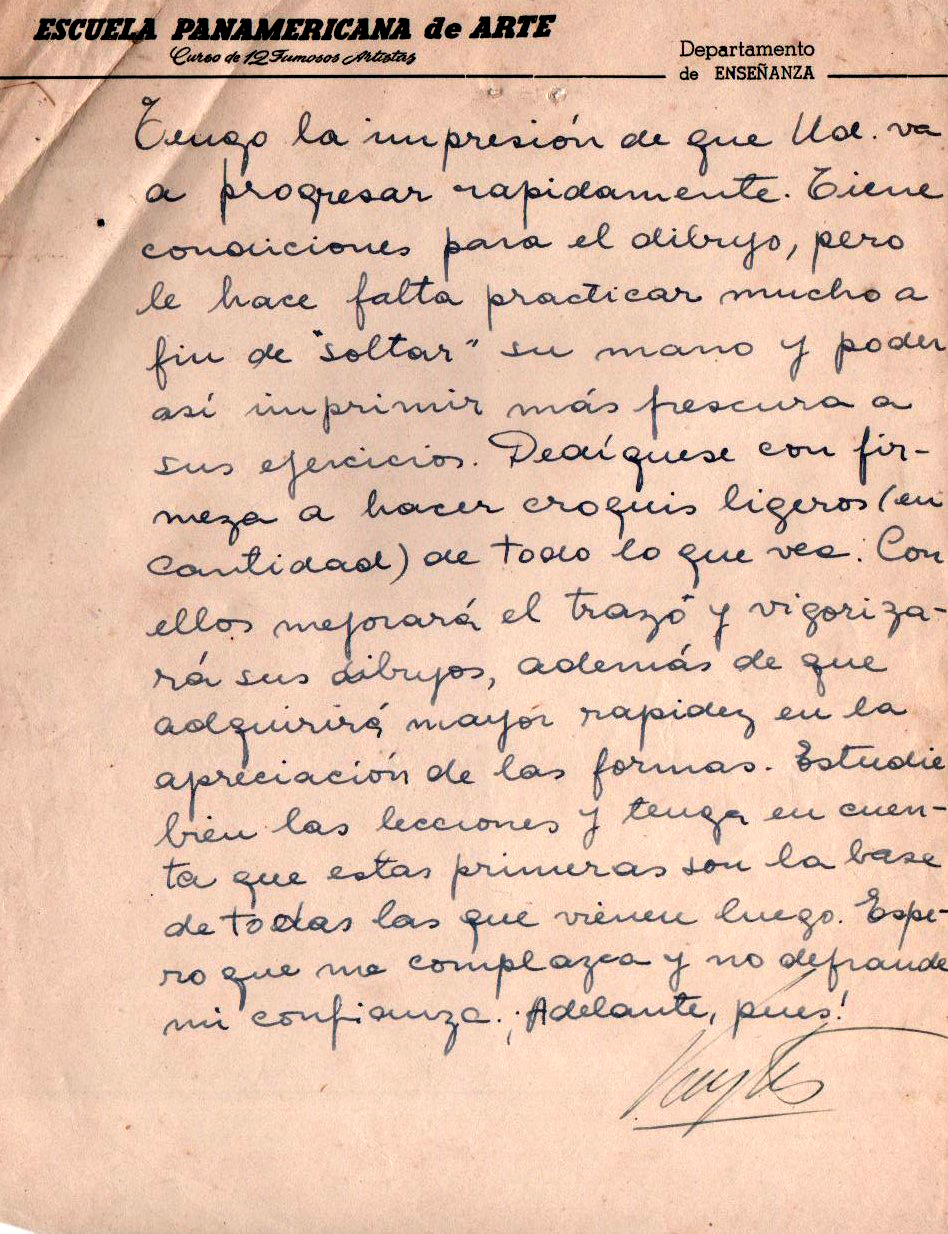 ESCUELA PANAMERICANA de ARTE
Curso de 12 Famosos Artistas
Departamento
de ENSEÑANZA
Tengo la impresión de que Ud. va
a progresar rapidamente. Tiene
condiciones para el dibujo, pero
le hace falta practicar mucho a
fin de "soltar" su mano y poder
así imprimir más frescura a
sus ejercicios. Dedíquese con fir-
meza a hacer croquis ligeros (en
cantidad) de todo lo que vea. Con
ellos mejorará el trazo y vigoriza-
rá sus dibujos, además de que
adquirirá mayor rapidez en la
apreciación de las formas. Estudie
bien las lecciones y tenga en cuen-
ta que estas primeras son la base
de todas las que vienen luego. Espe-
ro que me complazca y no defraude
mi confianza. ¡Adelante, pues!